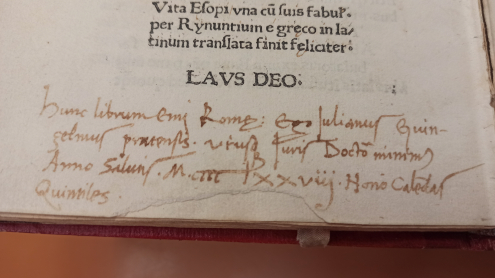 Vita Esopi vna cū suis fabul'.
per Rynuntium e greco in la/
tinum translata finit feliciter.
LAVS DEO.
Hunc librum Emj Romę: Ego Julianus Quin-
pratensis. Juris Doctoꝝ minimꝰ
Anno Salutis. M. cccc LXXViij. Nono Caledas
Quintiles.